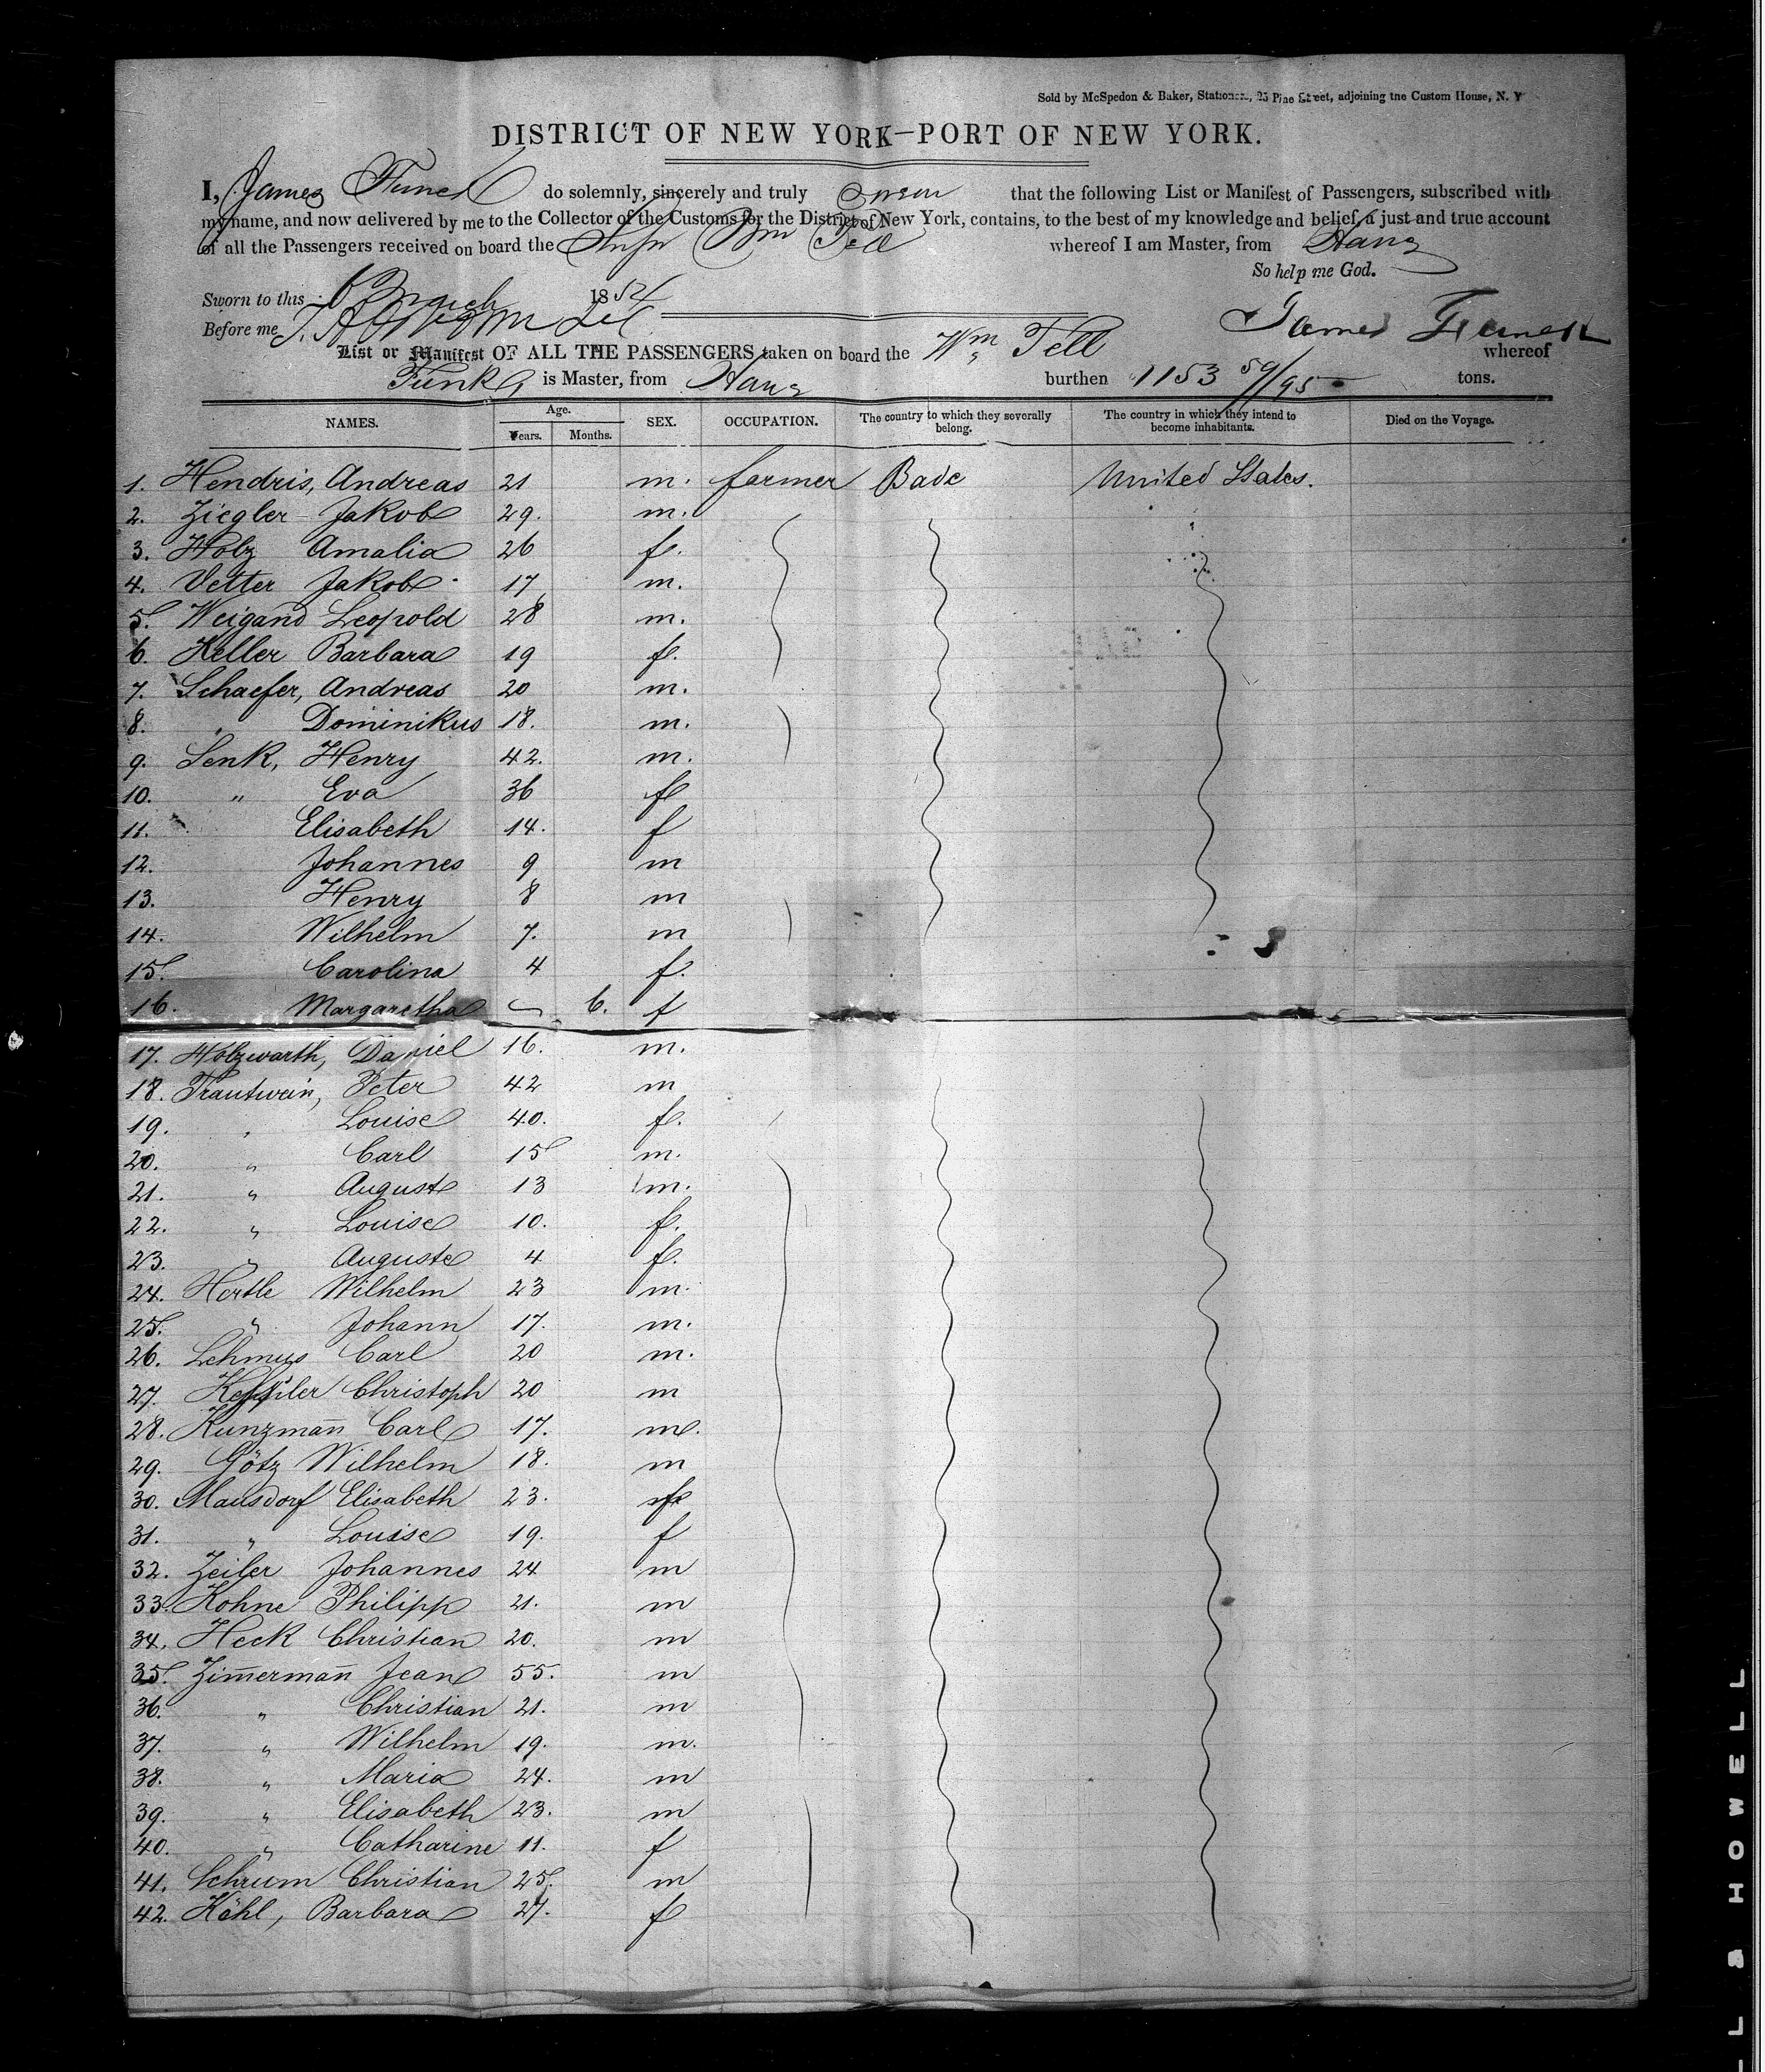 Sold by McSpedon & Baker, Stationers, 25 Pine Street, adjoining the Custom House, N. Y
DISTRICT OF NEW YORK—PORT OF NEW YORK.
I, James Funck do solemnly, sincerely and truly swear that the following List or Manifest of Passengers, subscribed with
my name, and now delivered by me to the Collector of the Customs for the District of New York, contains, to the best of my knowledge and belief, a just and true account
of all the Passengers received on board the Ship Wm Tell whereof I am Master, from Havre
So help me God.
Sworn to this 6 March 1854
Before me James Funck
List or Manifest OF ALL THE PASSENGERS taken on board the Wm Tell whereof
Funk is Master, from Havre burthen 1153 59/95 tons.
NAMES. Age. SEX. OCCUPATION. The country to which they severally belong. The country in which they intend to become inhabitants. Died on the Voyage.
Years. Months.
1. Hendris, Andreas 21 m. farmer Bade United States.
2. Ziegler Jakob 29. m.
3. Holz Amalia 26 f.
4. Vetter Jakob 17 m.
5. Weigand Leopold 28 m.
6. Keller Barbara 19 f.
7. Schaefer, Andreas 20 m.
8. " Dominikus 18. m.
9. Senk, Henry 42. m.
10. " Eva 36 f
11. Elisabeth 14. f
12. Johannes 9 m
13. Henry 8 m
14. Wilhelm 7. m
15. Carolina 4 f.
16. Margaretha 6. f
17. Holzwarth, Daniel 16. m.
18. Trautwein, Peter 42 m
19. " Louise 40. f.
20. " Carl 15 m.
21. " August 13 m.
22. " Louise 10. f.
23. " Auguste 4 f.
24. Hertle Wilhelm 23 m.
25. " Johann 17. m.
26. Lehmus Carl 20 m.
27. Christoph 20 m
28. Kunzman̄ Carl 17. m.
29. Götz Wilhelm 18. m
30. Mausdorf Elisabeth 23. f
31. " Louise 19. f
32. Zeiler Johannes 24 m
33. Kohne Philipp 21. m
34. Heck Christian 20. m
35. Zim̄erman̄ Jean 55. m
36. " Christian 21. m
37. " Wilhelm 19. m.
38. " Maria 24. m
39. " Elisabeth 23. m
40. " Catharine 11. f
41. Schrum Christian 25. m
42. Köhl, Barbara 27. f
L & HOWELL